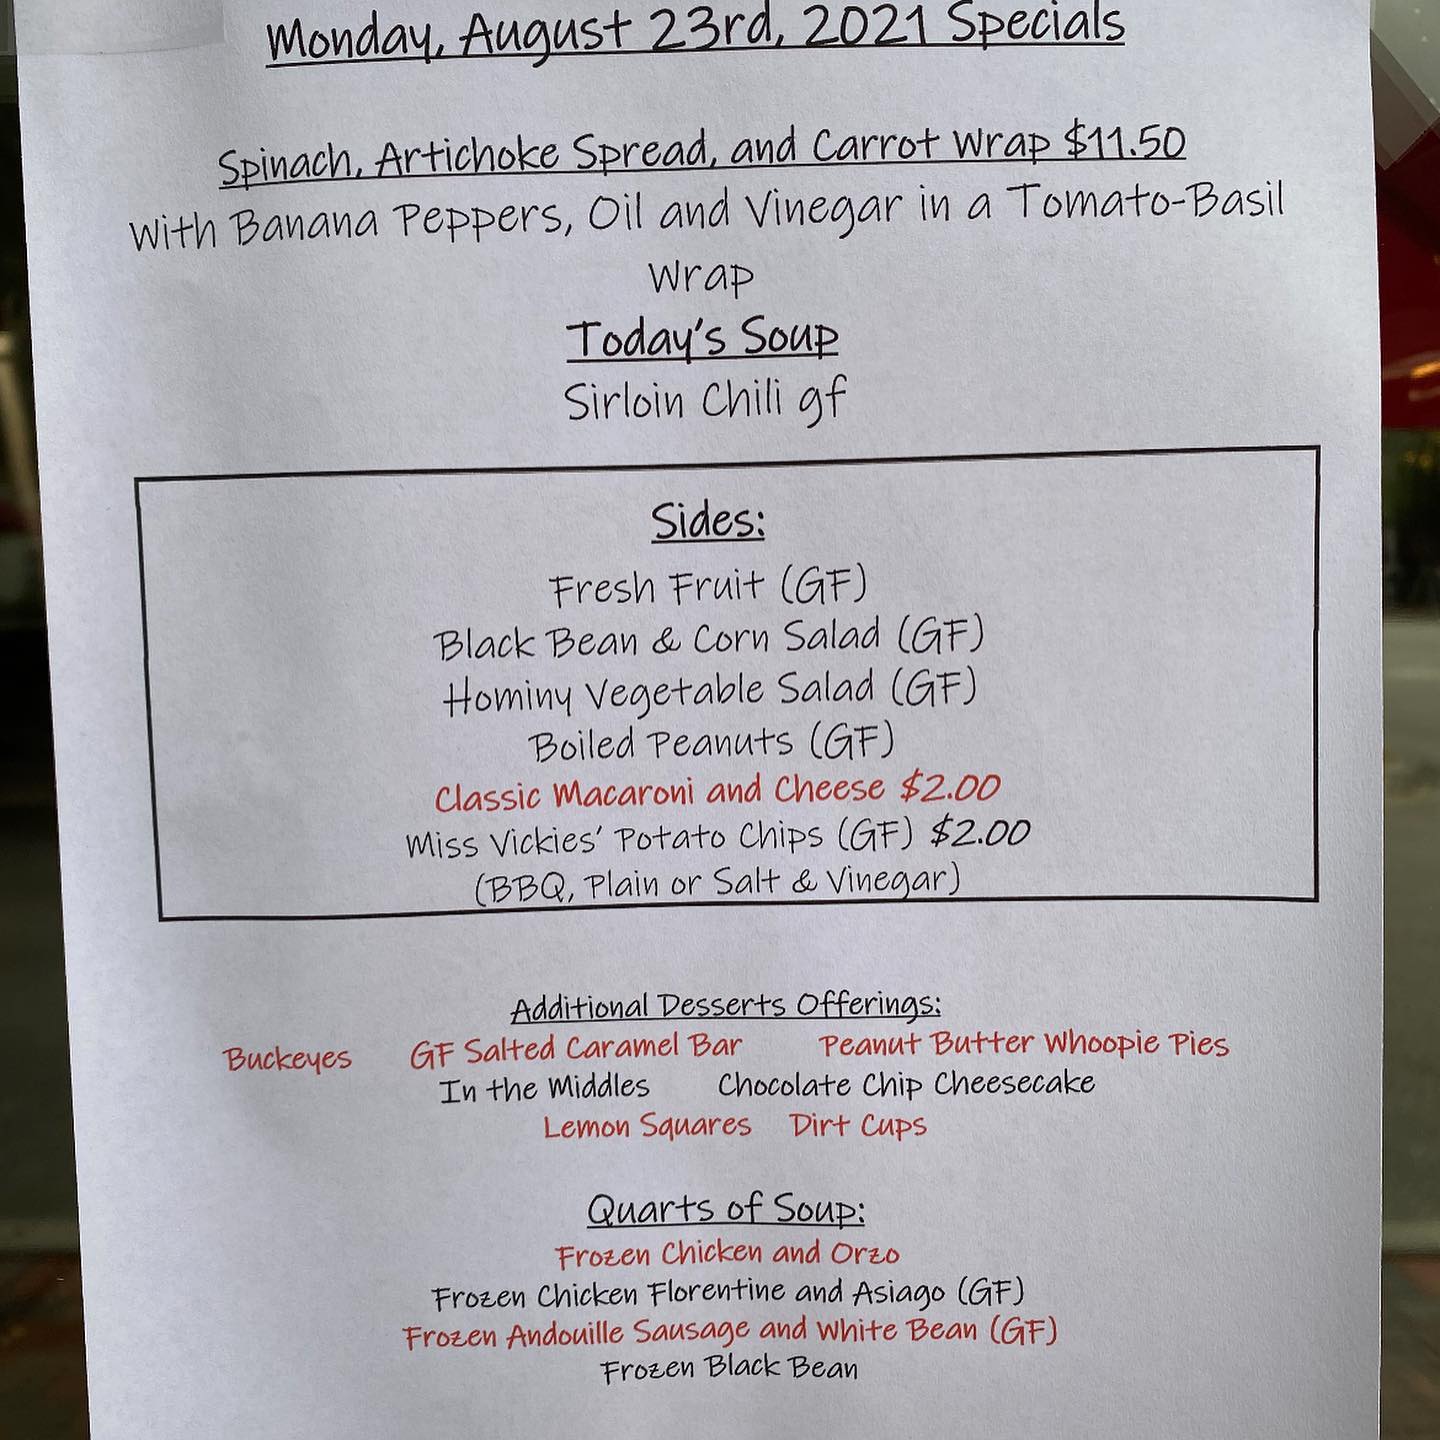 Monday, August 23rd, 2021 Specials
Spinach, Artichoke Spread, and Carrot Wrap $11.50
With Banana Peppers, Oil and Vinegar in a Tomato-Basil
Wrap
Today's Soup
Sirloin Chili gf
Sides:
Fresh Fruit (GF)
Black Bean & Corn Salad (GF)
Hominy Vegetable Salad (GF)
Boiled Peanuts (GF)
Classic Macaroni and Cheese $2.00
Miss Vickies' Potato Chips (GF) $2.00
(BBQ, Plain or Salt & Vinegar)
Additional Desserts Offerings:
Buckeyes GF Salted Caramel Bar Peanut Butter Whoopie Pies
In the Middles Chocolate Chip Cheesecake
Lemon Squares Dirt Cups
Quarts of Soup:
Frozen Chicken and Orzo
Frozen Chicken Florentine and Asiago (GF)
Frozen Andouille Sausage and White Bean (GF)
Frozen Black Bean